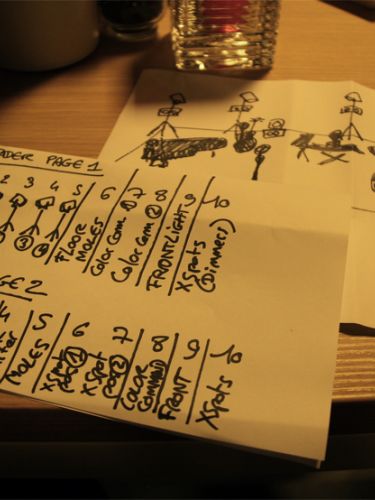 ADER PAGE 1
2 3 4 5 6 7 8 9 10
FLOOR MOLES
Color Com. 1
Color Com 2
FRONTLIGHT
XSpots (Dimmers)
GE 2
4 5 6 7 8 9 10
MOLES
XSpot
XSpot
COLOR COMMAND
FRONT
XSpots